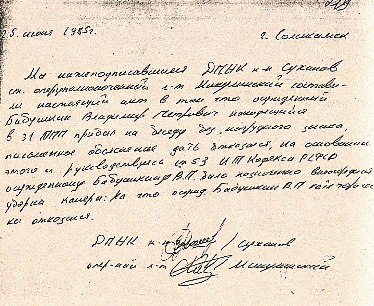 25 июня 1985г. г. Соликамск
Мы нижеподписавшиеся ДПНК к-н Суханов
ст. оперуполномоченный л-т состави-
ли настоящий акт в том что осужденный
Бабушкин Владимир Петрович
в 31 прибыл на беседу без нагрудного знака,
письменное объяснение дать отказался, на основании
этого и руководствуясь ст 53 ИТ Кодекса РСФСР
осужденному Бабушкину В.П. было
камера: На что осужд Бабушкин В.П.
отказался.
ДПНК к-н / Суханов
опер-ный л-т